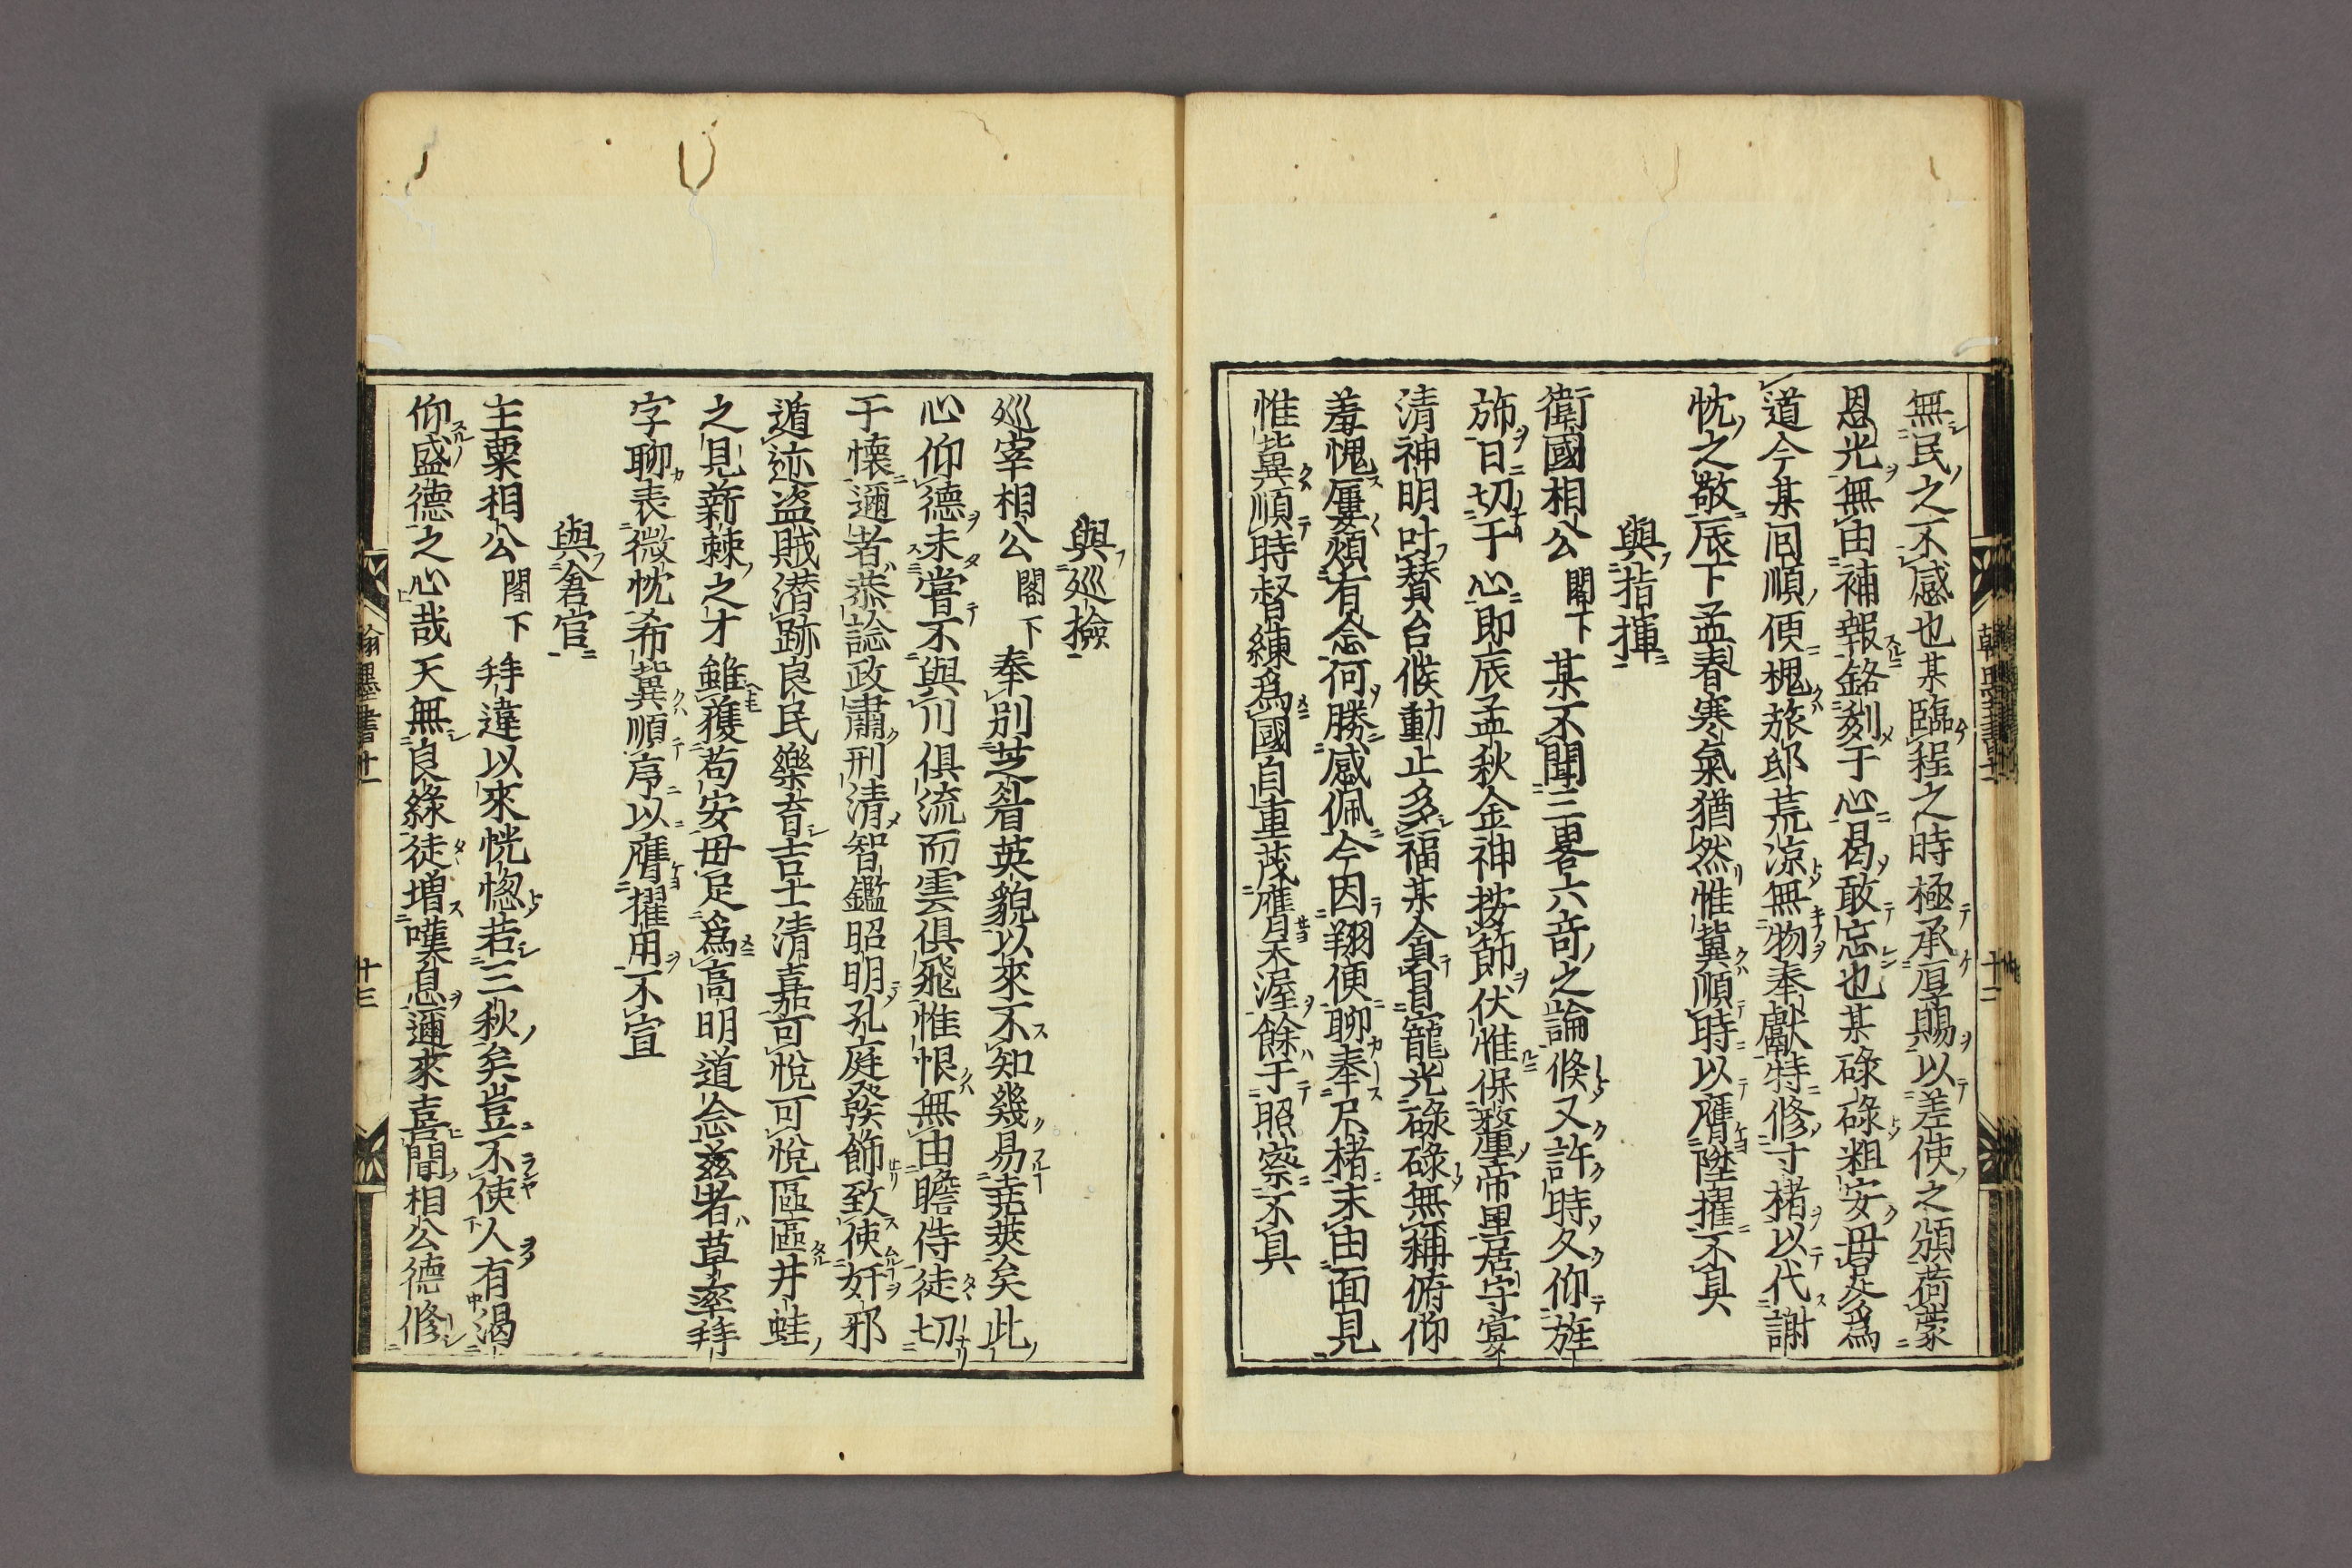 無民之不感也某臨程之時極承厚賜以差使之頒荷蒙
恩光無由補報銘刻于心曷敢忘也某碌碌粗安毋足爲
道今某囘順便槐旅邸荒凉無物奉獻特修寸楮以代謝
忱之敬辰下孟春寒氣猶然惟冀順時以膺陞擢不具
與指揮
衛國相公閣下某不聞三畧六竒之論倐又許時夂仰旌
旆日切于心即辰孟秋金神按節伏惟保釐帝里居守宴
清神明叶賛台候動止多福某貪冒寵光碌碌無稱俯仰
羞愧屢煩有念何勝感佩今因翔便聊奉尺楮末由面見
惟冀順時督練爲國自重茂膺天渥餘于照察不具
與巡撿
巡宰相公閣下奉別芝眉英貌以來不知幾易堯蓂矣此
心仰德未嘗不與川俱流而雲俱飛惟恨無由瞻侍徒切
于懐邇者恭諗政肅刑清智鑑昭明孔庭發飾致使奸邪
遁迹盗賊潜跡良民樂育吉士清嘉可悦可悅區區井蛙
之見薪棘之才雖獲苟安毋足爲高明道念兹者草率拜
字聊表微忱希冀順序以膺擢用不宣
與倉官
主粟相公閣下拜違以來恍惚若三秋矣豈不使人有渴
仰盛德之心哉天無良緣徒増嘆息邇來喜聞相公德修
翰墨書十一
十三